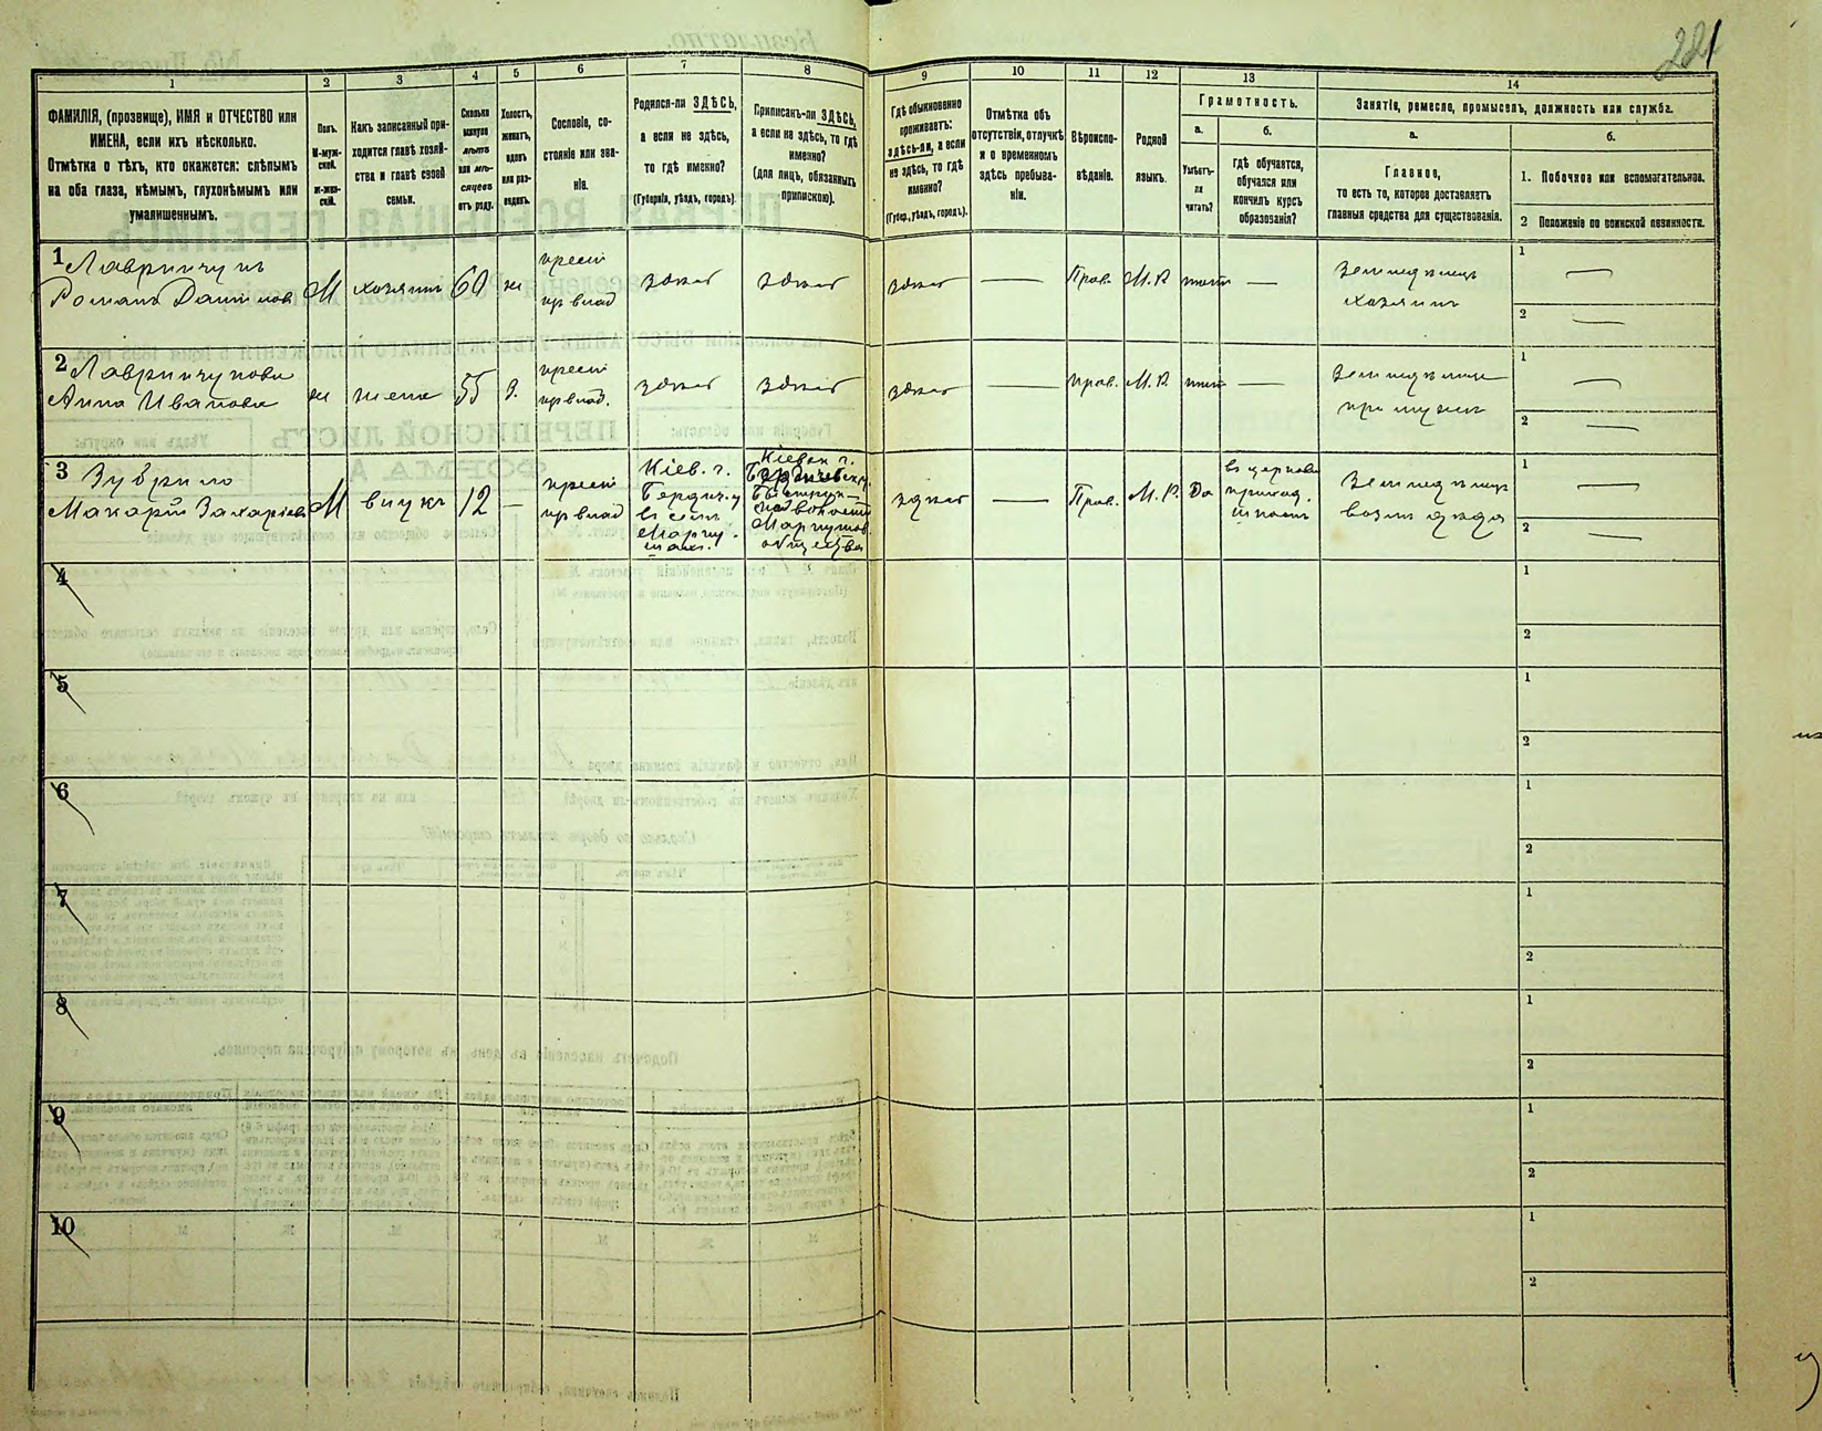 221
1
2
3
4
5
6
7
8
9
10
11
12
13
14
ФАМИЛІЯ, (прозвище), ИМЯ и ОТЧЕСТВО или
ИМЕНА, если ихъ нѣсколько.
Отмѣтка о тѣхъ, кто окажется: слѣпымъ
на оба глаза, нѣмымъ, глухонѣмымъ или
умалишеннымъ.
Полъ.
М-муж-
ской.
ж-жен-
скій.
Какъ записанный при-
ходится главѣ хозяй-
ства и главѣ своей
семьи.
Сколько
минуло
лѣтъ
или мѣ-
сяцевъ
отъ роду.
Холостъ,
женатъ,
вдовъ
или раз-
веденъ.
Сословіе, со-
стояніе или зва-
ніе.
Родился-ли ЗДѢСЬ,
а если не здѣсь,
то гдѣ именно?
(Губернія, уѣздъ, городъ).
Приписанъ-ли ЗДѢСЬ,
а если не здѣсь, то гдѣ
именно?
(для лицъ, обязанныхъ
припискою).
Гдѣ обыкновенно
проживаетъ:
здѣсь-ли, а если
не здѣсь, то гдѣ
именно?
(Губер., уѣздъ, городъ).
Отмѣтка объ
отсутствіи, отлучкѣ
и о временномъ
здѣсь пребыва-
ніи.
Вѣроиспо-
вѣданіе.
Родной
языкъ.
Грамотность.
а.
Умѣетъ-
ли
читать?
б.
гдѣ обучается,
обучался или
кончилъ курсъ
образованія?
Занятіе, ремесло, промыселъ, должность или служба.
а.
Главное,
то есть то, которое доставляетъ
главныя средства для существованія.
б.
1. Побочное или вспомогательное.
2 Положеніе по воинской повинности.
1 Лавринчукъ
Романъ Данилов
М
хозяинъ
60
ж
крест
кр влад
здѣсь
здѣсь
здѣсь
—
Прав.
М. Р.
нѣтъ
—
земледѣлецъ
хозяинъ
1 —
2 —
2 Лавринчукова
Анна Иванова
ж
жена
55
З.
крест
кр влад.
здѣсь
здѣсь
здѣсь
—
прав.
М. Р.
нѣтъ
—
земледѣлие
при мужѣ
1 —
2 —
3 Зубрило
Макарій Захаріев
М
внукъ
12
—
крест
кр влад
Кіев. г.
Бердич. у
Кіевск г.
Бердичевск у.
общества
здѣсь
—
Прав.
М. Р.
Да
въ церковн
приход.
школѣ
земледѣлецъ
возлѣ дѣда
1 —
2 —
4
1
2
5
1
2
6
1
2
7
1
2
8
1
2
9
1
2
10
1
2